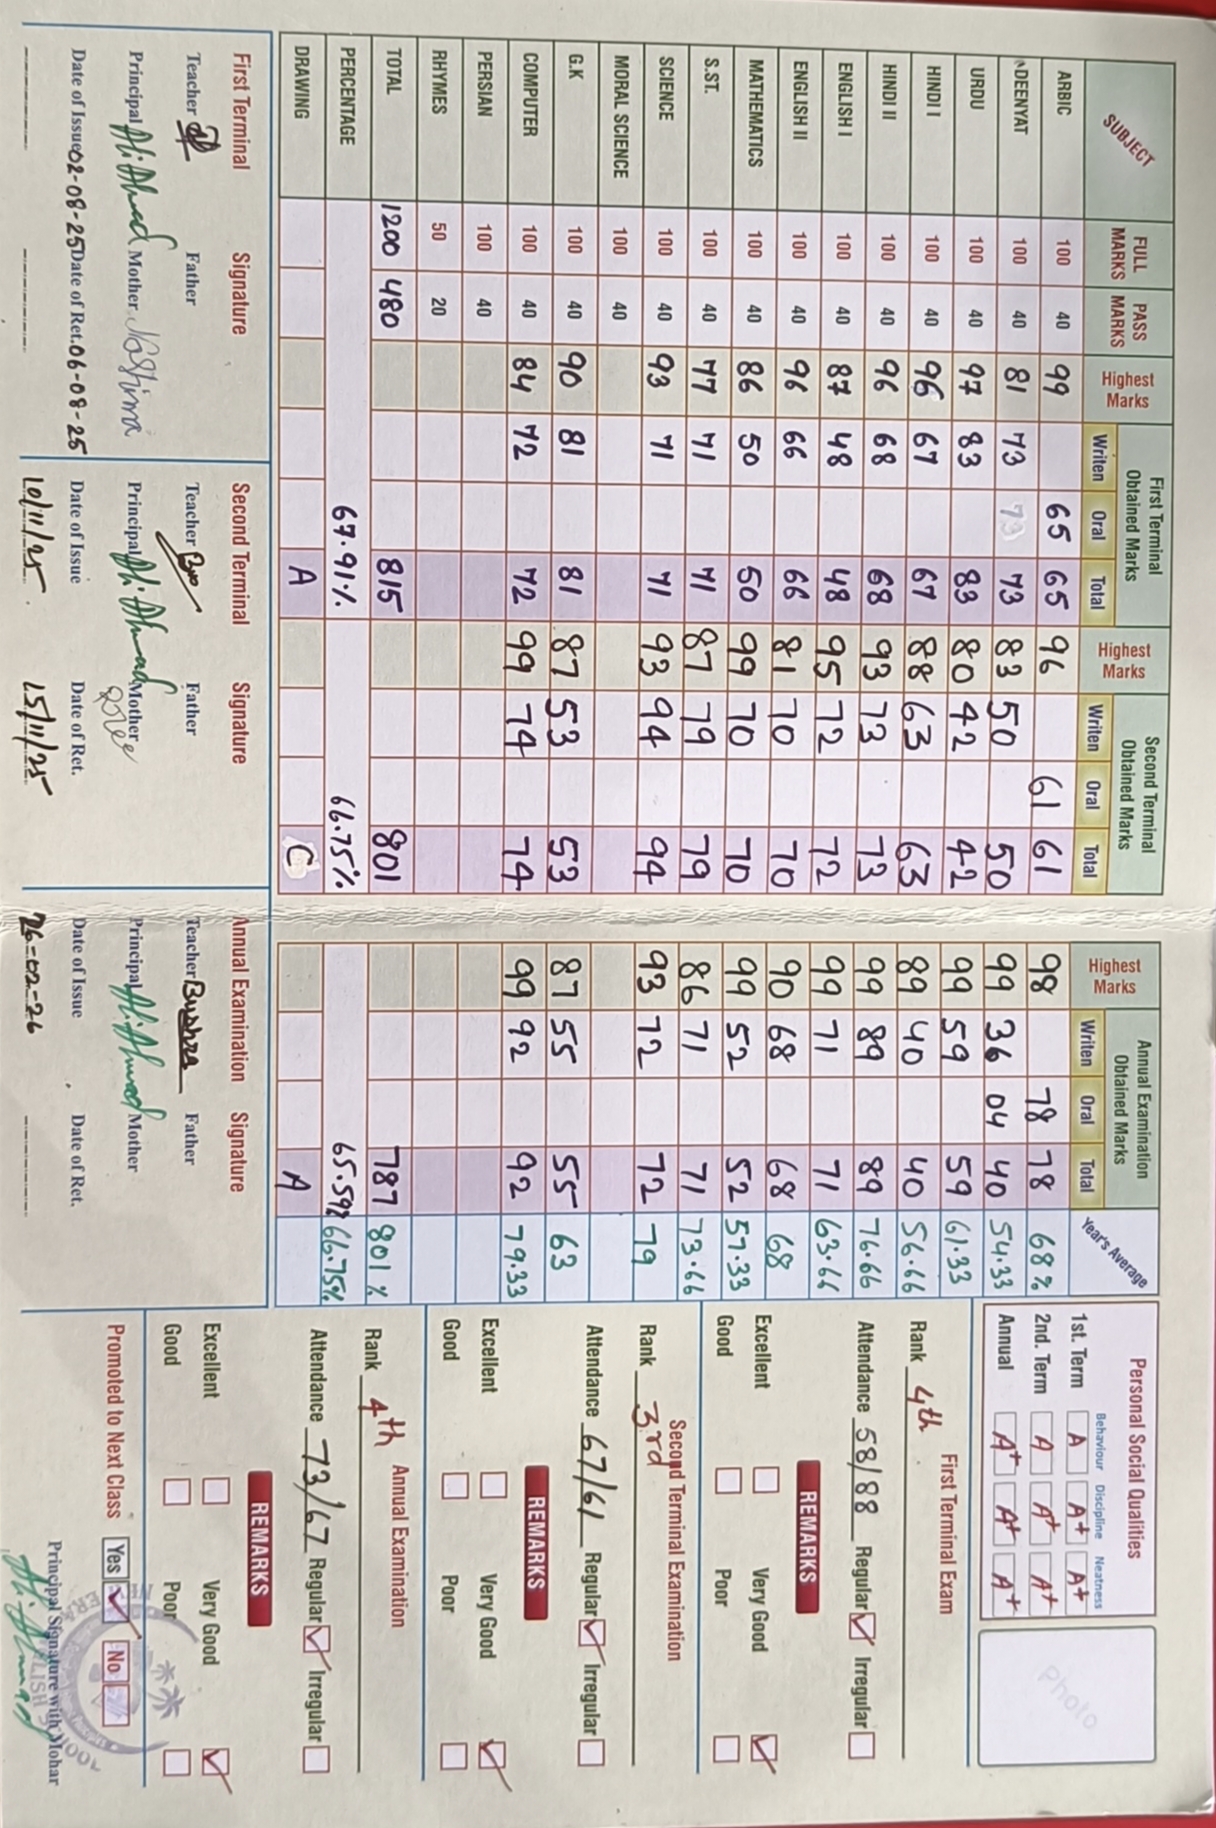 SUBJECT FULL MARKS PASS MARKS Highest Marks First Terminal Obtained Marks Writen Oral Total Highest Marks Second Terminal Obtained Marks Writen Oral Total Highest Marks Annual Examination Obtained Marks Writen Oral Total Year's Average
ARBIC 100 40 99 65 65 96 61 61 98 78 78 68%
DEENYAT 100 40 81 73 73 73 83 50 50 99 36 04 40 54.33
URDU 100 40 97 83 83 80 42 42 99 59 59 61.33
HINDI I 100 40 96 67 67 88 63 63 89 40 40 56.66
HINDI II 100 40 96 68 68 93 73 73 99 89 89 76.66
ENGLISH I 100 40 87 48 48 95 72 72 99 71 71 63.66
ENGLISH II 100 40 96 66 66 81 70 70 90 68 68 68
MATHEMATICS 100 40 86 50 50 99 70 70 99 52 52 57.33
S.ST. 100 40 77 71 71 87 79 79 86 71 71 73.66
SCIENCE 100 40 93 71 71 93 94 94 93 72 72 79
MORAL SCIENCE 100 40
G.K 100 40 90 81 81 87 53 53 87 55 55 63
COMPUTER 100 40 84 72 72 99 74 74 99 92 92 79.33
PERSIAN 100 40
RHYMES 50 20
TOTAL 1200 480 815 801 787 801 %
PERCENTAGE 67.91% 66.75% 65.59% 66.75%
DRAWING A C A
First Terminal Signature
Teacher Father
Principal Ali Ahmad Mother Nashima
Date of Issue 02-08-25 Date of Ret. 06-08-25
Second Terminal Signature
Teacher Father
Principal Ali Ahmad Mother
Date of Issue Date of Ret.
10/11/25 15/11/25
Annual Examination Signature
Teacher Bushra Father
Principal Ali Ahmad Mother
Date of Issue Date of Ret.
26-02-26
Personal Social Qualities
Behaviour Discipline Neatness
1st. Term A A+ A+
2nd. Term A A+ A+
Annual A+ A+ A+
Photo
First Terminal Exam
Rank 4th
Attendance 58/88 Regular Irregular
REMARKS
Excellent Very Good
Good Poor
Second Terminal Examination
Rank 3rd
Attendance 67/61 Regular Irregular
REMARKS
Excellent Very Good
Good Poor
Annual Examination
Rank 4th
Attendance 73/67 Regular Irregular
REMARKS
Excellent Very Good
Good Poor
Promoted to Next Class Yes No
Principal Signature with Mohar
Ali Ahmad